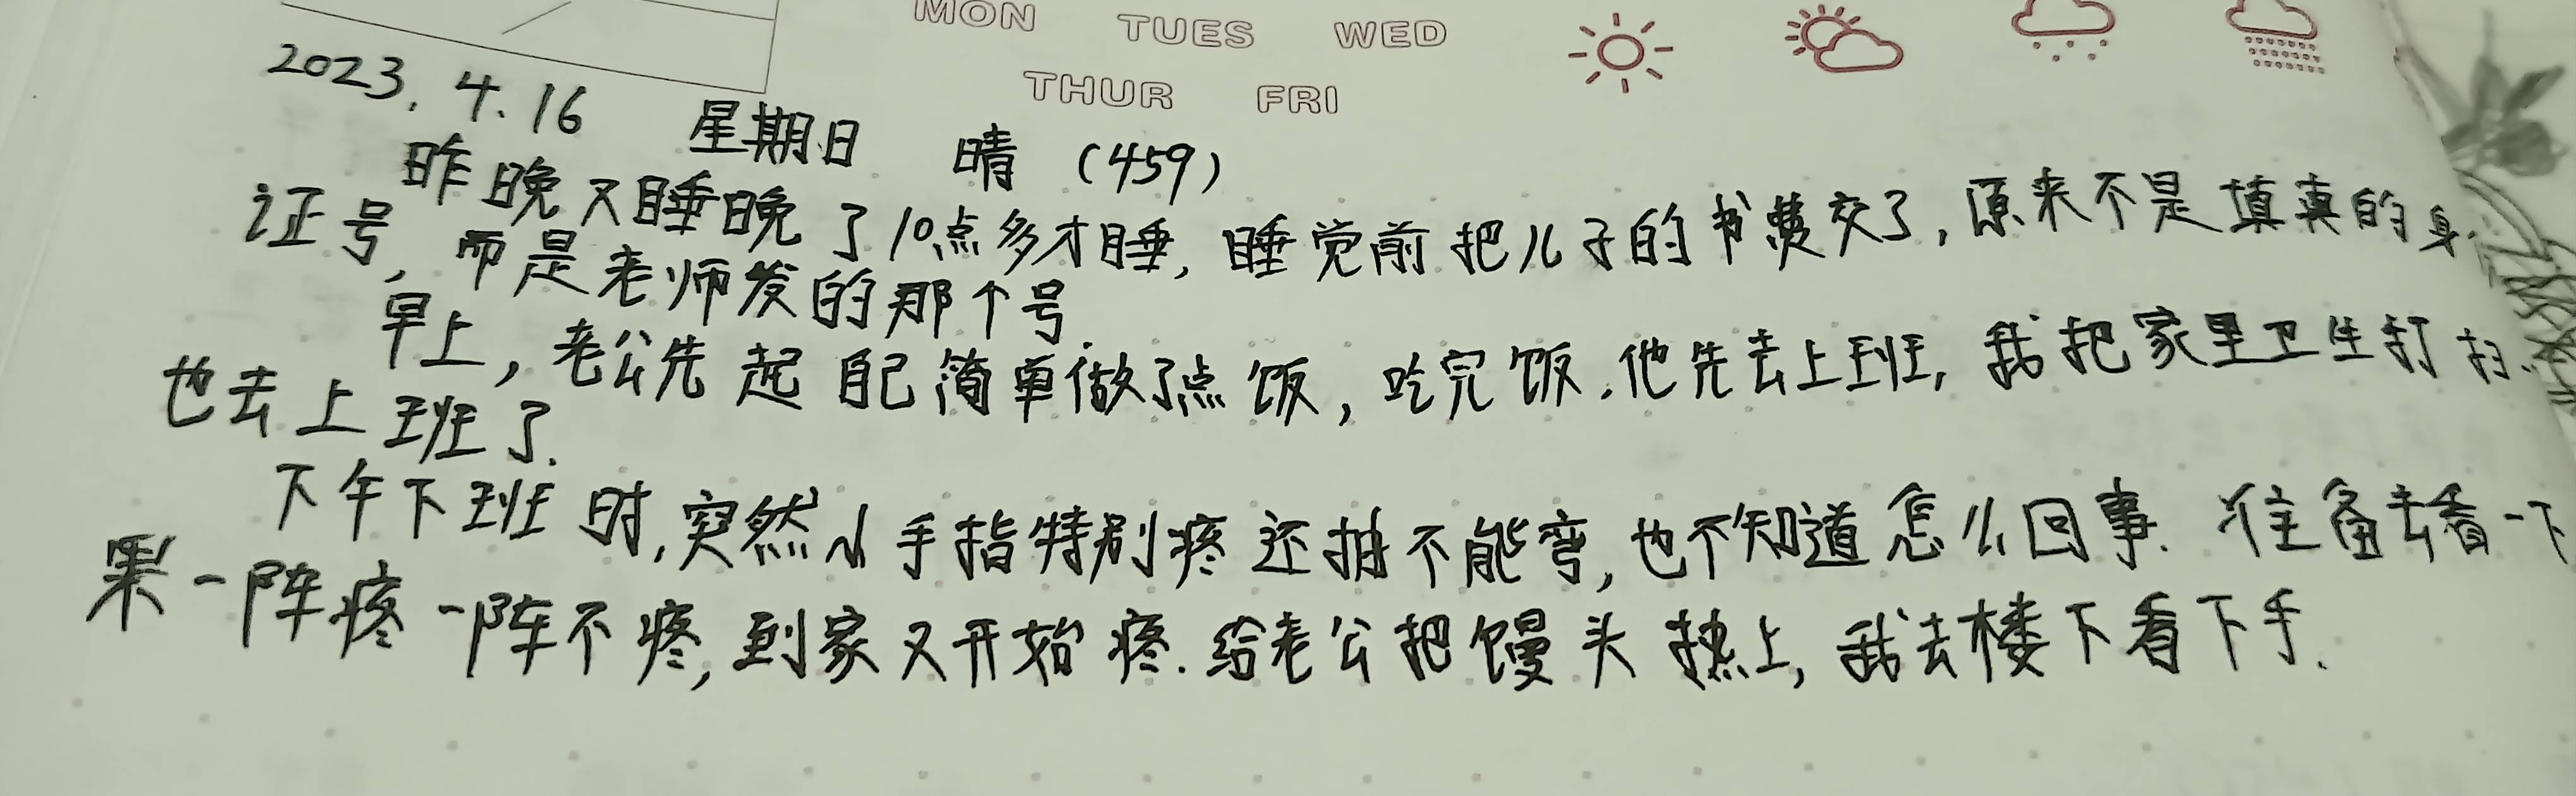 MON TUES WED
THUR FRI
2023.4.16 星期日 晴 (459)
昨晚又睡晚了10点多才睡,睡觉前把儿子的书费交了,原来不是填真的身
证号,而是老师发的那个号.
早上,老公先起自己简单做了点饭,吃完饭.他先去上班,我把家里卫生打扫
也去上班了.
下午下班时,突然小手指特别疼还抽不能弯,也不知道怎么回事.准备去看一下
果一阵疼一阵不疼,到家又开始疼.给老公把馒头热上,我去楼下看下手.